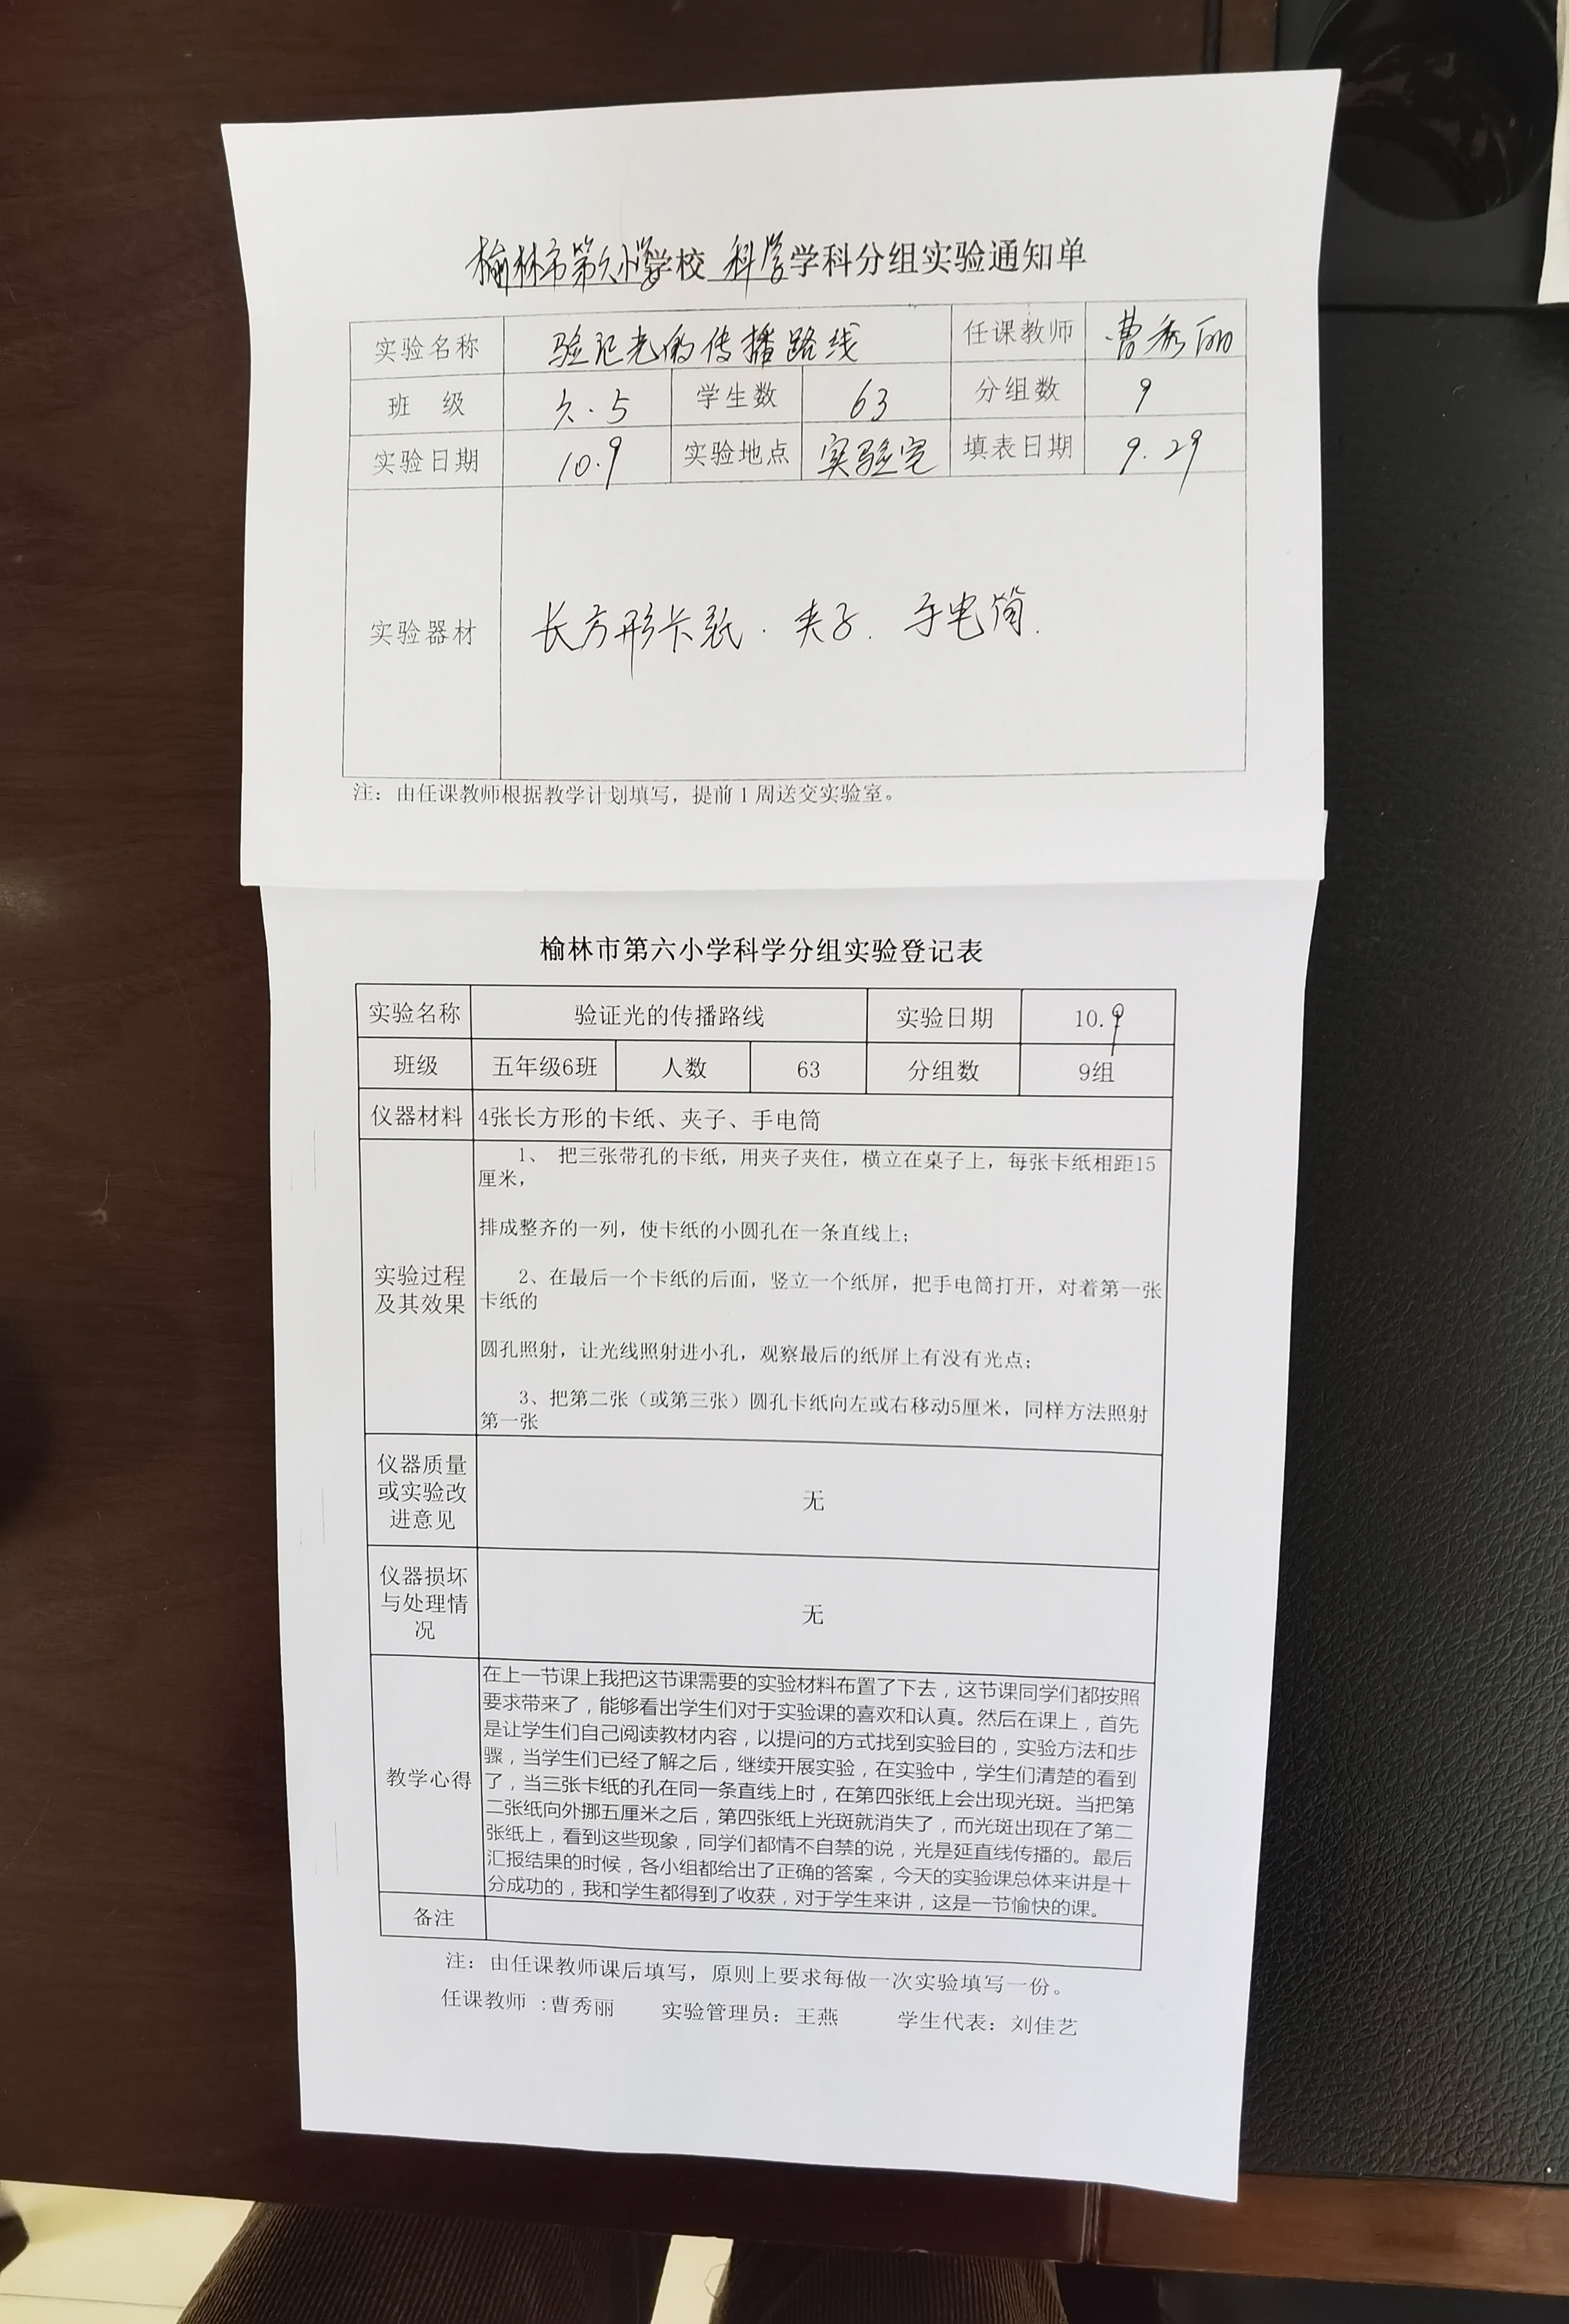 榆林市第六小学学校 科学学科分组实验通知单
实验名称 验证光的传播路线 任课教师 曹秀丽
班 级 六.5 学生数 63 分组数 9
实验日期 10.9 实验地点 实验室 填表日期 9.29
实验器材 长方形卡纸. 夹子. 手电筒.
注：由任课教师根据教学计划填写，提前1周送交实验室。
榆林市第六小学科学分组实验登记表
实验名称 验证光的传播路线 实验日期 10.9
班级 五年级6班 人数 63 分组数 9组
仪器材料 4张长方形的卡纸、夹子、手电筒
1、 把三张带孔的卡纸，用夹子夹住，横立在桌子上，每张卡纸相距15
厘米，
排成整齐的一列，使卡纸的小圆孔在一条直线上；
实验过程
及其效果
2、在最后一个卡纸的后面，竖立一个纸屏，把手电筒打开，对着第一张
卡纸的
圆孔照射，让光线照射进小孔，观察最后的纸屏上有没有光点；
3、把第二张（或第三张）圆孔卡纸向左或右移动5厘米，同样方法照射
第一张
仪器质量
或实验改
进意见
无
仪器损坏
与处理情
况
无
教学心得
在上一节课上我把这节课需要的实验材料布置了下去，这节课同学们都按照
要求带来了，能够看出学生们对于实验课的喜欢和认真。然后在课上，首先
是让学生们自己阅读教材内容，以提问的方式找到实验目的，实验方法和步
骤，当学生们已经了解之后，继续开展实验，在实验中，学生们清楚的看到
了，当三张卡纸的孔在同一条直线上时，在第四张纸上会出现光斑。当把第
二张纸向外挪五厘米之后，第四张纸上光斑就消失了，而光斑出现在了第二
张纸上，看到这些现象，同学们都情不自禁的说，光是延直线传播的。最后
汇报结果的时候，各小组都给出了正确的答案，今天的实验课总体来讲是十
分成功的，我和学生都得到了收获，对于学生来讲，这是一节愉快的课。
备注
注：由任课教师课后填写，原则上要求每做一次实验填写一份。
任课教师 :曹秀丽 实验管理员：王燕 学生代表：刘佳艺